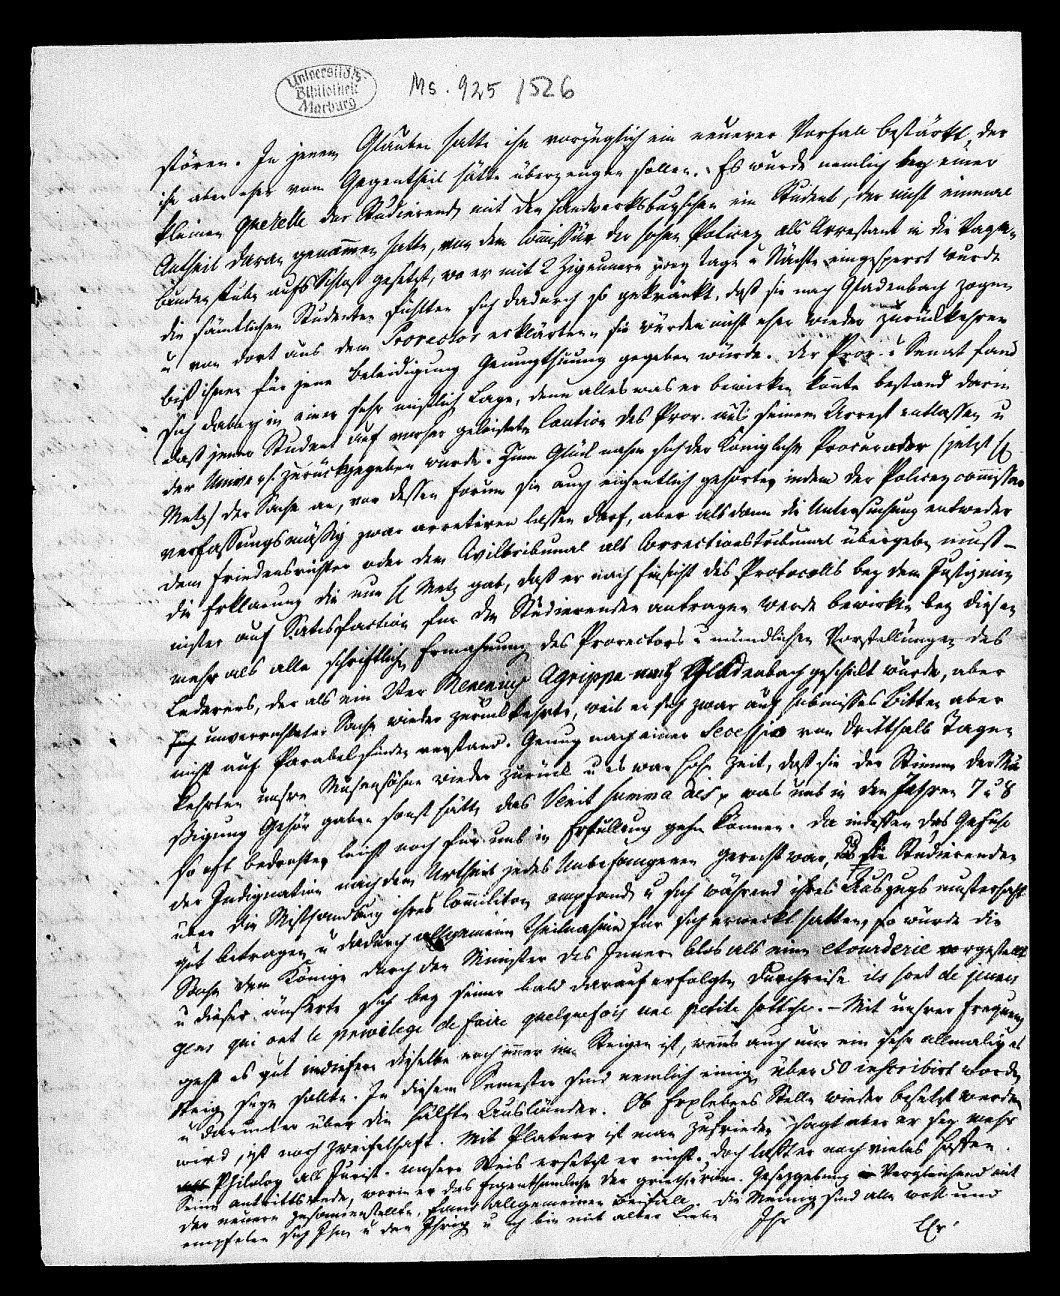 Universitäts-
Bibliothek
Marburg
Ms. 925/526
stören. In jenem Glauben hatte ihn vorzüglich ein neuerer Vorfall bestärkt, der
ihn aber eher vom Gegentheil hätte überzeugen sollen. Es wurde nemlich bey einer
kleinen Querelle der Studierenden mit den Handwerksburschen ein Student, der nicht einmal
Antheil daran genommen hatte, von dem Commissär der hohen Polizey als Arrestant in die Vaga-
bundenstube aufs Schloß gesetzt, wo er mit 2 Zigeunern zwey Tage u Nächte eingesperrt wurde
die sämtlichen Studenten fühlten sich dadurch so gekränkt, daß sie nach Gladenbach zogen
u von dort aus dem Prorector erklärten sie würden nicht eher wieder zurückkehren
biß ihnen für jene Beleidigung Genungthuung gegeben würde. Der Pror. u Senat fand
sich dabey in einer sehr mißlichen Lage, denn alles was er bewirken konnte bestand darin
daß jener Student auf vorher geleistete Caution des Pror. aus seinem Arrest entlassen u
der Univers. zurückgegeben wurde. Zum Glück nahm sich der Königliche Procurator (jetzt H
Metz) der Sache an, vor dessen Forum sie auch eigentlich gehörte, indem der Policeycommissar
verfassungsmäßig zwar arretiren lassen darf, aber alsdann die Untersuchung entweder
dem Friedensrichter oder dem Civiltribunal als Correctionstribunal übergeben muß –
die Erklaerung die nun H Metz gab, daß er nach Einsicht des Protocolls bey dem Justizmi-
nister auf Satisfaction für die Studierenden antragen werde bewirkte bey diesen
mehr als alle schriftliche Ermahnung des Prorectors u mündlichen Vorstellungen des
Lederers, der als ein 2ter Menenius Agrippa nach Gladenbach geschickt wurde, aber
unverrichteter Sache wieder zurück kehrte, weil er sich zwar auf submisses Bitten aber
nicht auf Parabelfinden verstand. Genug nach einer Secessio von drittehalb Tagen
kehrten unsre Musensöhne wieder zurück u es war hohe Zeit, daß sie der Stimme der Mä-
ßigung Gehör gaben sonst hätte das Venit summa dies was uns in den Jahren 7 u 8
so oft bedrohte, leicht noch für uns in Erfüllung gehn können. Da indessen das Gefühl
der Indignation nach dem Urtheil jedes Unbefangenen gerecht war, das die Studierenden
über die Mißhandlung ihres Commilitonen empfanden u sich während ihres Auszugs musterhaft
gut betragen u dadurch allgemeine Theilnahme für sich erweckt hatten, so wurde die
Sache dem Könige durch den Minister des Innern blos als eine etourderie vorgestellt
u dieser äußerte sich bey seiner bald darauf erfolgten Durchreise ils sont de jeunes
gens qui ont le privilege de faire quelquefois une petite sottise. – Mit unsrer Frequenz
geht es gut indessen dieselbe noch immer im Steigen ist, wenns auch nur ein sehr allmaliges
Steigen seyn sollte. In diesem Semester sind nemlich einige über 50 inscribirt worden
u darunter über die Hälfte Ausländer. Ob Erxlebens Stelle wieder besetzt werden
wird, ist noch zweifelhaft. Mit Platner ist man zufrieden, sagt aber er sey mehr
Philolog als Jurist. unsern Weis ersetzt er nicht. doch läßt er noch vieles hoffen.
Seine Antrittsrede, worin er das Eigenthümliche der griechischen Gesezgebung vergleichend mit
der neuern zusammenstellte, fand allgemeinen Beifall. Die Meinigen sind alle wohl und
empfelen sich Ihnen u den Ihrig. u ich bin mit alter Liebe Ihr